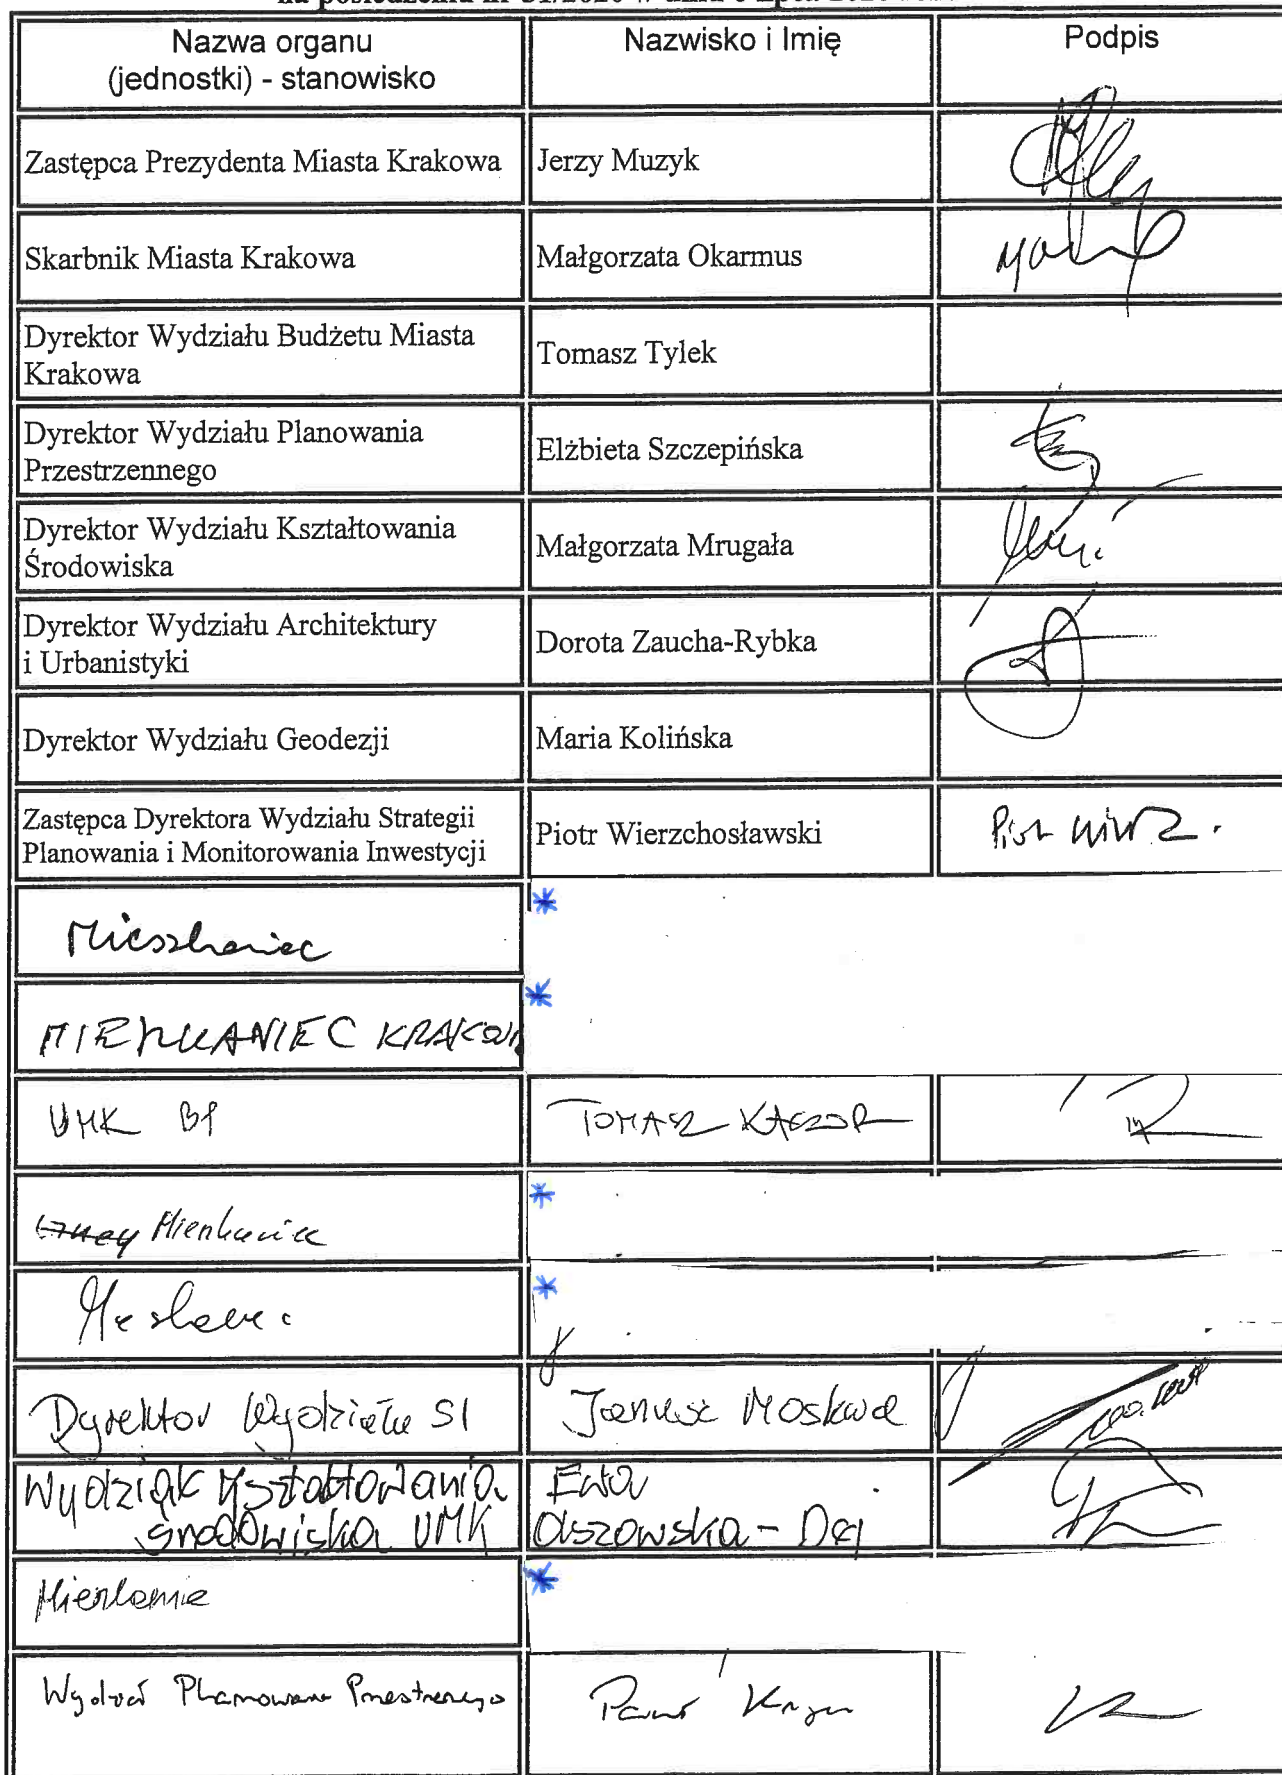 Nazwa organu
(jednostki) - stanowisko
Nazwisko i Imię
Podpis
Zastępca Prezydenta Miasta Krakowa
Jerzy Muzyk
Skarbnik Miasta Krakowa
Małgorzata Okarmus
Dyrektor Wydziału Budżetu Miasta
Krakowa
Tomasz Tylek
Dyrektor Wydziału Planowania
Przestrzennego
Elżbieta Szczepińska
Dyrektor Wydziału Kształtowania
Środowiska
Małgorzata Mrugała
Dyrektor Wydziału Architektury
i Urbanistyki
Dorota Zaucha-Rybka
Dyrektor Wydziału Geodezji
Maria Kolińska
Zastępca Dyrektora Wydziału Strategii
Planowania i Monitorowania Inwestycji
Piotr Wierzchosławski
Mieszkaniec
*
MIESZKANIEC KRAKOWA
*
UMK BP
TOMASZ KACZOR
Mieszkaniec
*
*
Dyrektor Wydziału SI
Janusz Moskwa
Wydział Kształtowania
środowiska UMK
Ewa
Olszowska - Dej
*
Wydział Planowania Przestrzennego
Paweł